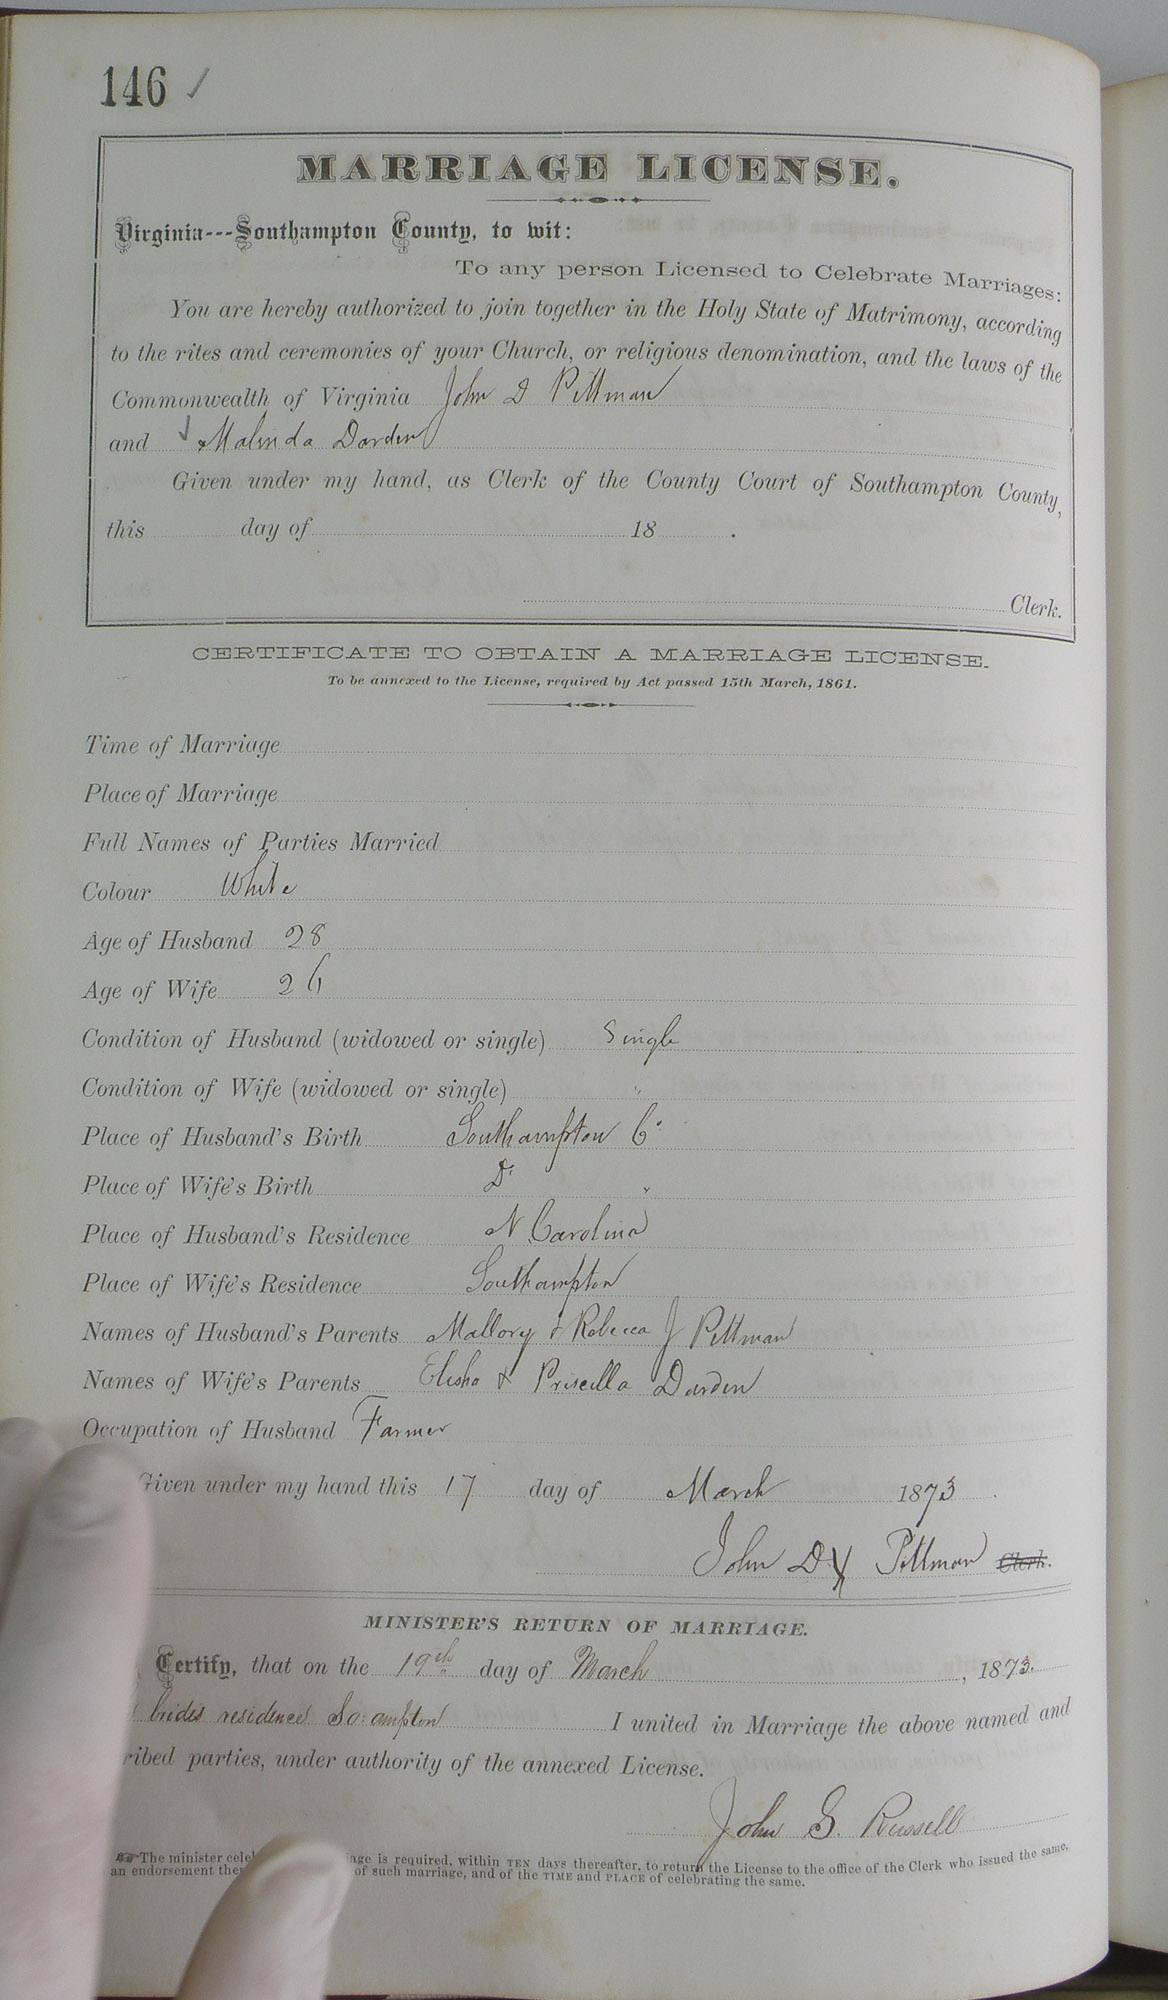 146 ✓
MARRIAGE LICENSE.
Virginia---Southampton County, to wit:
To any person Licensed to Celebrate Marriages:
You are hereby authorized to join together in the Holy State of Matrimony, according
to the rites and ceremonies of your Church, or religious denomination, and the laws of the
Commonwealth of Virginia John D Pittman
and Malinda Darden
Given under my hand, as Clerk of the County Court of Southampton County,
this day of 18 .
Clerk.
CERTIFICATE TO OBTAIN A MARRIAGE LICENSE.
To be annexed to the License, required by Act passed 15th March, 1861.
Time of Marriage
Place of Marriage
Full Names of Parties Married
Colour White
Age of Husband 28
Age of Wife 26
Condition of Husband (widowed or single) Single
Condition of Wife (widowed or single) "
Place of Husband's Birth Southampton Co
Place of Wife's Birth Do "
Place of Husband's Residence N Carolina
Place of Wife's Residence Southampton
Names of Husband's Parents Mallory & Rebecca J Pittman
Names of Wife's Parents Elisha & Priscilla Darden
Occupation of Husband Farmer
Given under my hand this 17 day of March 1873 .
John D X Pittman Clerk.
MINISTER'S RETURN OF MARRIAGE.
Certify, that on the 19th day of March, 1873.
brides residence So:ampton I united in Marriage the above named and
ribed parties, under authority of the annexed License.
John G. Russell
The minister cele age is required, within TEN days thereafter, to return the License to the office of the Clerk who issued the same,
an endorsement the of such marriage, and of the TIME and PLACE of celebrating the same.